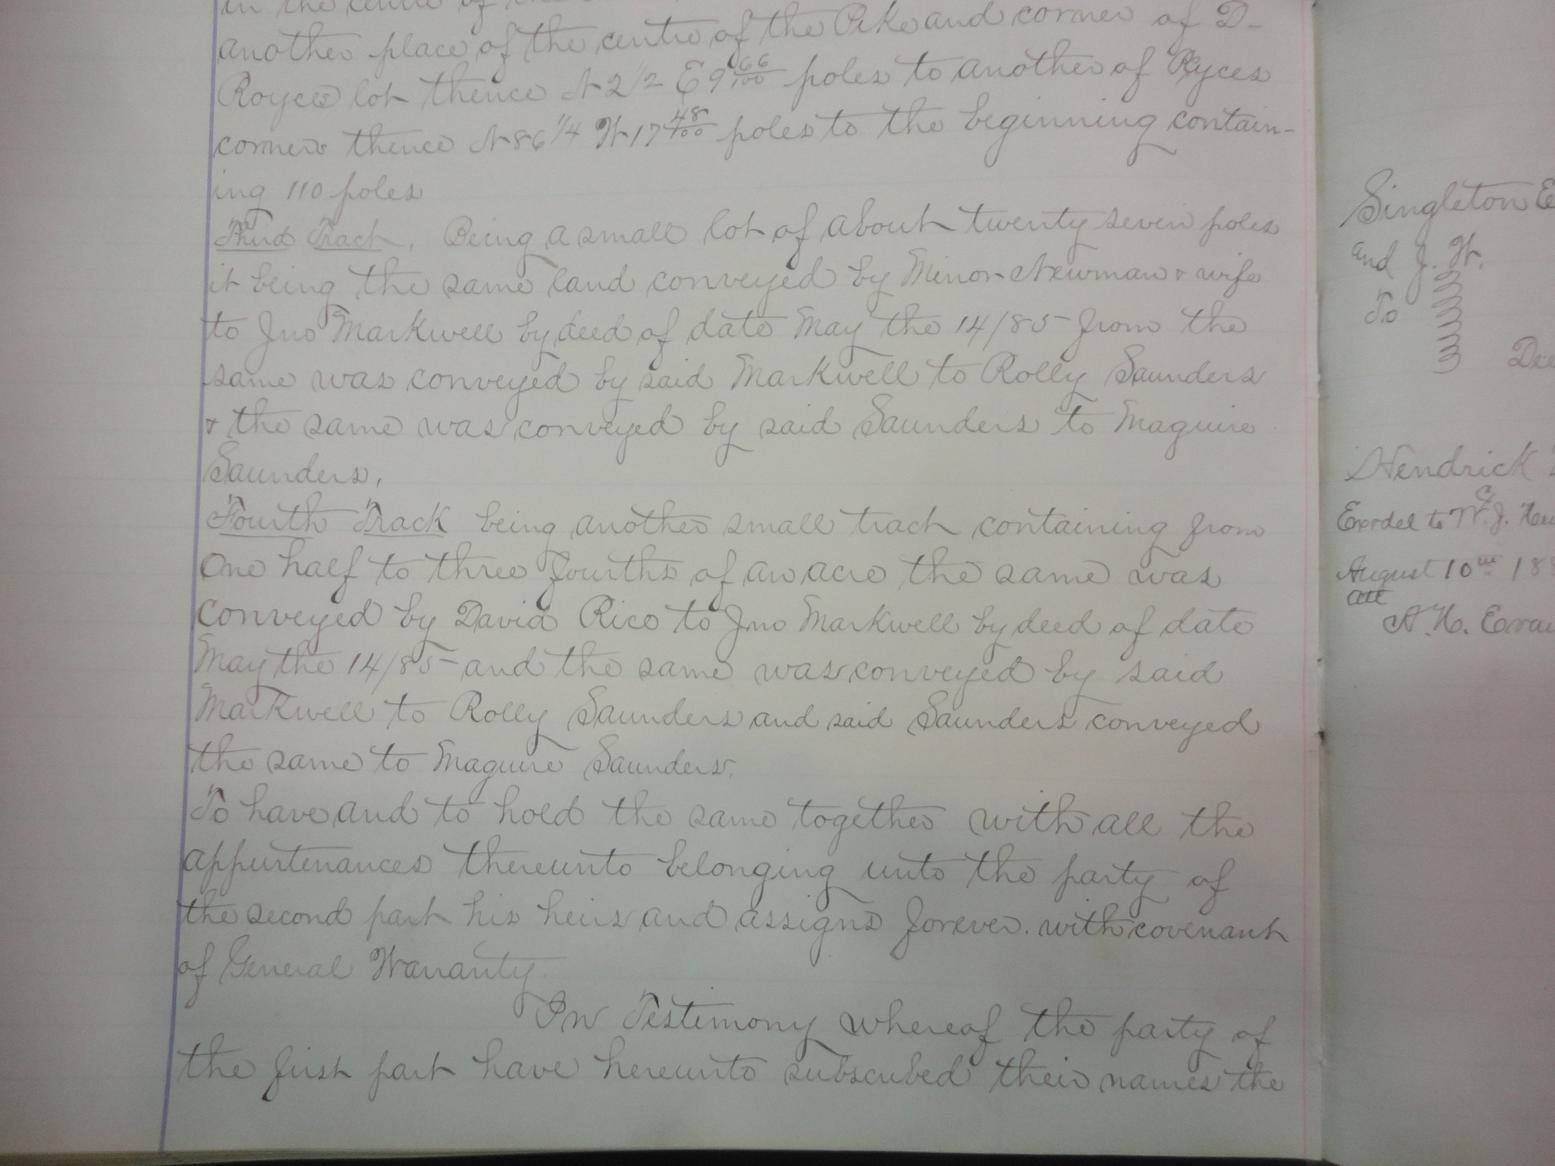 in the centre of the
another place of the centre of the Pike and corner of D-
Royces lot thence N 2 1/2 E 9 66/100 poles to another of Royces
corners thence N 86 1/4 W 17 48/100 poles to the beginning contain-
ing 110 poles
Third Tract. Being a small lot of about twenty seven poles
it being the same land conveyed by Minor Newman & wife
to Jno Markwell by deed of date May the 14/85 from the
same was conveyed by said Markwell to Rolly Saunders
& the same was conveyed by said Saunders to Maguire
Saunders.
Fourth Track being another small tract containing from
One half to three fourths of an acre the same was
conveyed by David Rice to Jno Markwell by deed of date
May the 14/85 and the same was conveyed by said
Markwell to Rolly Saunders and said Saunders conveyed
the same to Maguire Saunders.
To have and to hold the same together with all the
appurtenances thereunto belonging unto the party of
the second part his heirs and assigns forever. with covenant
of General Warranty.
In Testimony whereof the party of
the first part have hereunto subscribed their names the
Singleton E
and J. W.
To
Dee
Hendrick
to W. J.
August 10th 188
att
A. H. Evan